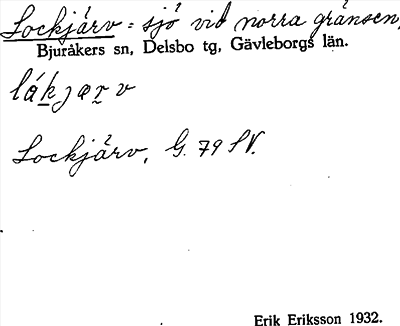 Lockjärv = sjö vid norra gränsen,
Bjuråkers sn, Delsbo tg, Gävleborgs län.
lákjærv
Lockjärv, G. 79 SV.
Erik Eriksson 1932.